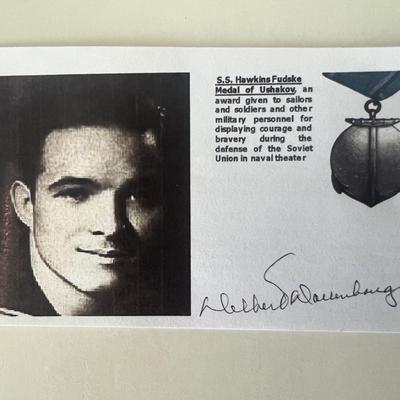 S.S. Hawkins Fudske
Medal of Ushakov, an
award given to sailors
and soldiers and other
military personnel for
displaying courage and
bravery during the
defense of the Soviet
Union in naval theater